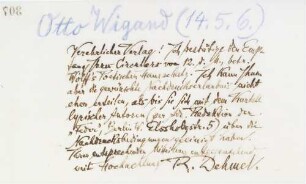 807
Otto Wigand (14.5.6.)
Verehrlicher Verlag! Ich bestätige den Empfang
Ihres Circulars vom 12. d. M., betr.
Wolff's Poetischen Hausschatz. Ich kann Ihnen
aber die gewünschte Nachdruckserlaubnis nicht
eher erteilen, als bis Sie sich mit dem Kartell
lyrischer Autoren (per Adr. Redaktion der
"Feder", Berlin W. Elssholzstr. 5) über die
Nachdrucksbedingungen geeinigt haben.
Ihrer entsprechenden
mit Hochachtung R. Dehmel.